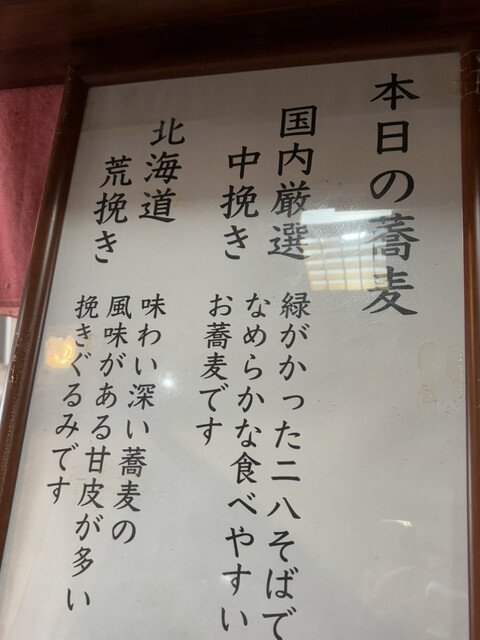 本日の蕎麦
国内厳選
中挽き
緑がかった二八そばで
なめらかな食べやすい
お蕎麦です
北海道
荒挽き
味わい深い蕎麦の
風味がある甘皮が多い
挽きぐるみです